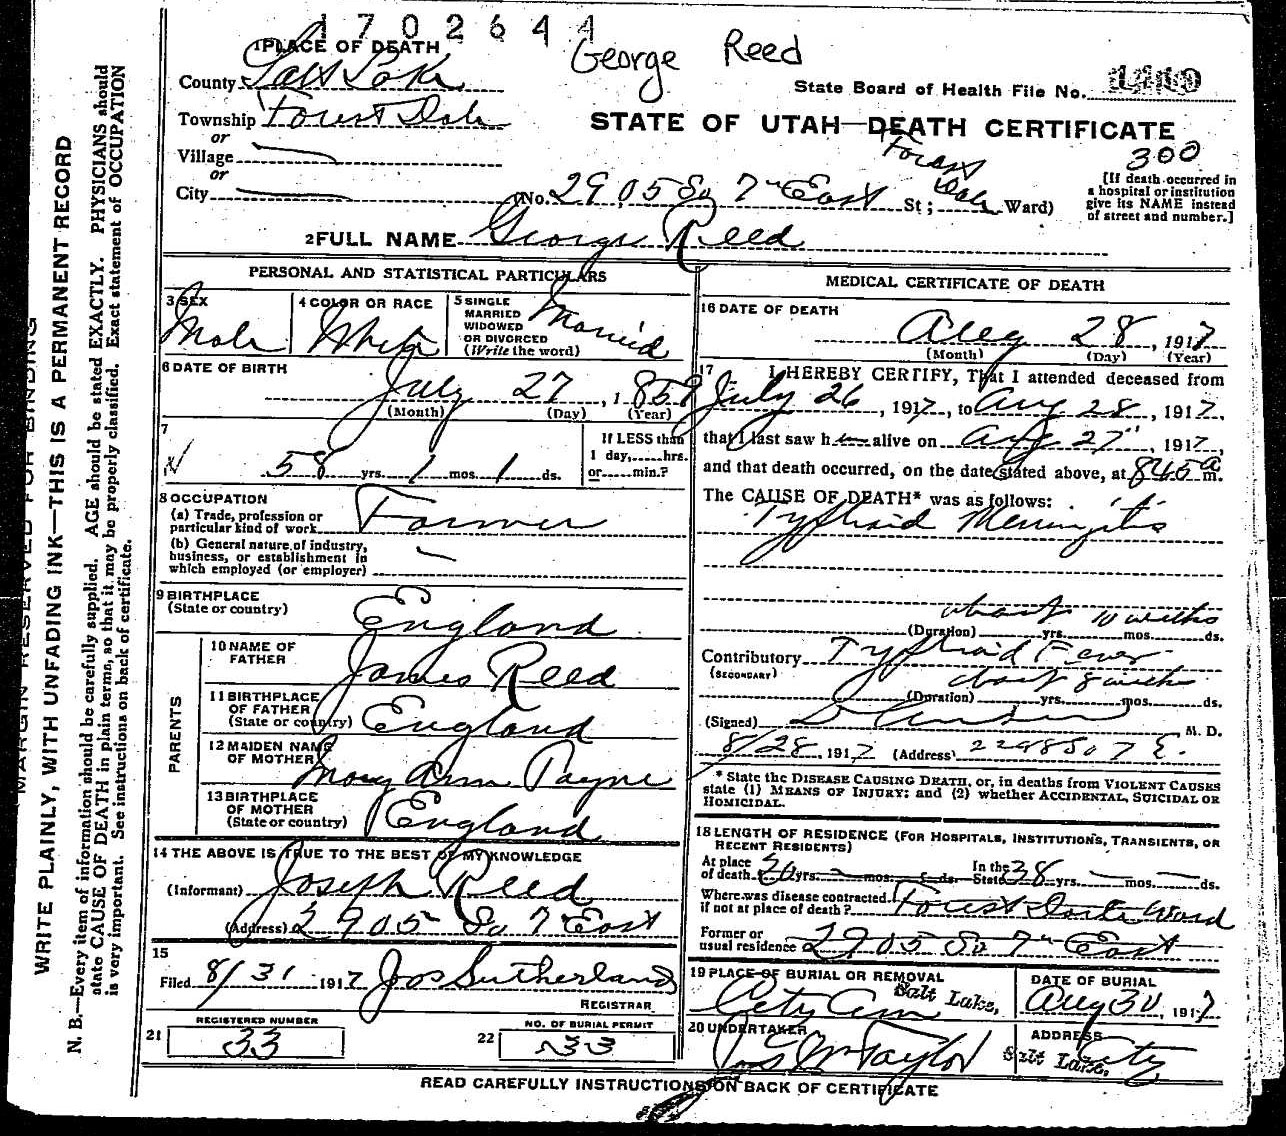 1702644
George Reed
1 PLACE OF DEATH
County Salt Lake
State Board of Health File No.
Township Forest Dale
STATE OF UTAH—DEATH CERTIFICATE
or
Village
300
or
City
(No. 2905 So 7th East St; Forest Dale Ward)
[If death occurred in
a hospital or institution
give its NAME instead
of street and number.]
2 FULL NAME George Reed
PERSONAL AND STATISTICAL PARTICULARS
3 SEX
Male
4 COLOR OR RACE
White
5 SINGLE
MARRIED
WIDOWED
OR DIVORCED
(Write the word)
Married
6 DATE OF BIRTH
July 27, 1859
(Month) (Day) (Year)
7
58 yrs. 1 mos. 1 ds.
If LESS than
1 day,......hrs.
or......min.?
8 OCCUPATION
(a) Trade, profession or
particular kind of work Farmer
(b) General nature of industry,
business, or establishment in
which employed (or employer)
9 BIRTHPLACE
(State or country)
England
PARENTS
10 NAME OF
FATHER
James Reed
11 BIRTHPLACE
OF FATHER
(State or country)
England
12 MAIDEN NAME
OF MOTHER
Mary Ann Payne
13 BIRTHPLACE
OF MOTHER
(State or country)
England
14 THE ABOVE IS TRUE TO THE BEST OF MY KNOWLEDGE
(Informant) Joseph Reed
(Address) 2905 So 7 East
15
Filed 8/31 1917 Jos Sutherland
REGISTRAR
21 REGISTERED NUMBER
33
22 NO. OF BURIAL PERMIT
33
MEDICAL CERTIFICATE OF DEATH
16 DATE OF DEATH
Aug 28, 1917
(Month) (Day) (Year)
17 I HEREBY CERTIFY, That I attended deceased from
July 26, 1917, to Aug 28, 1917,
that I last saw him alive on Aug 27th, 1917,
and that death occurred, on the date stated above, at 845 a m.
The CAUSE OF DEATH* was as follows:
Typhoid Meningitis
about 10 weeks
(Duration) yrs. mos. ds.
Contributory Typhoid Fever
(SECONDARY)
about 8 weeks
(Duration) yrs. mos. ds.
(Signed) M. D.
8/28, 1917 (Address) 2298 So 7 E.
* State the DISEASE CAUSING DEATH, or, in deaths from VIOLENT CAUSES
state (1) MEANS OF INJURY; and (2) whether ACCIDENTAL, SUICIDAL OR
HOMICIDAL.
18 LENGTH OF RESIDENCE (FOR HOSPITALS, INSTITUTIONS, TRANSIENTS, OR
RECENT RESIDENTS)
At place
of death yrs. mos. ds.
In the
State 38 yrs. mos. ds.
Where was disease contracted
if not at place of death? Forest Dale Ward
Former or
usual residence 2905 So 7th East
19 PLACE OF BURIAL OR REMOVAL
City Cem Salt Lake,
DATE OF BURIAL
Aug 30, 1917
20 UNDERTAKER
Jos Wm Taylor
ADDRESS
Salt Lake, City
READ CAREFULLY INSTRUCTIONS ON BACK OF CERTIFICATE
MARGIN RESERVED FOR BINDING
WRITE PLAINLY, WITH UNFADING INK—THIS IS A PERMANENT RECORD
N. B.—Every item of information should be carefully supplied. AGE should be stated EXACTLY. PHYSICIANS should
state CAUSE OF DEATH in plain terms, so that it may be properly classified. Exact statement of OCCUPATION
is very important. See instructions on back of certificate.